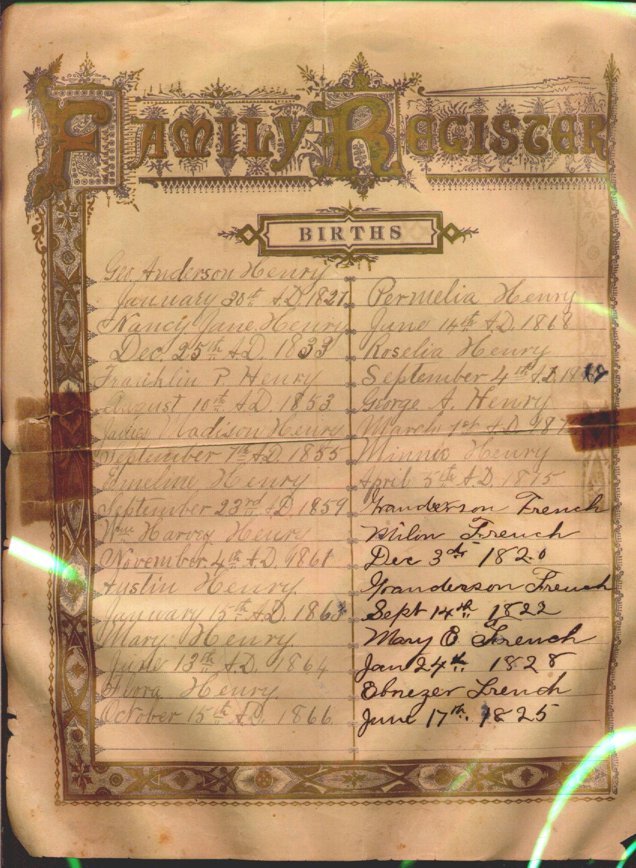 Family Register
BIRTHS
Geo. Anderson Henry
January 30th A.D. 1827
Nancy Jane Henry
Dec. 25th A.D. 1833
Franklin P. Henry
August 10th A.D. 1853
James Madison Henry
September 7th A.D. 1855
Emeline Henry
September 23rd A.D. 1859
Wm Harvey Henry
November 4th A.D. 1861
Austin Henry
January 15th A.D. 1863
Mary Henry
June 13th A.D. 1864
Flora Henry
October 15th A.D. 1866
Permelia Henry
June 14th A.D. 1868
Roselia Henry
September 4th A.D.
George A. Henry
March 1st A.D.
Minnie Henry
April 5th A.D. 1875
Granderson French
Milon French
Dec 3d 1820
Granderson French
Sept 14th 1822
Mary E French
Jan 24th 1828
Ebnezer French
June 17th 1825